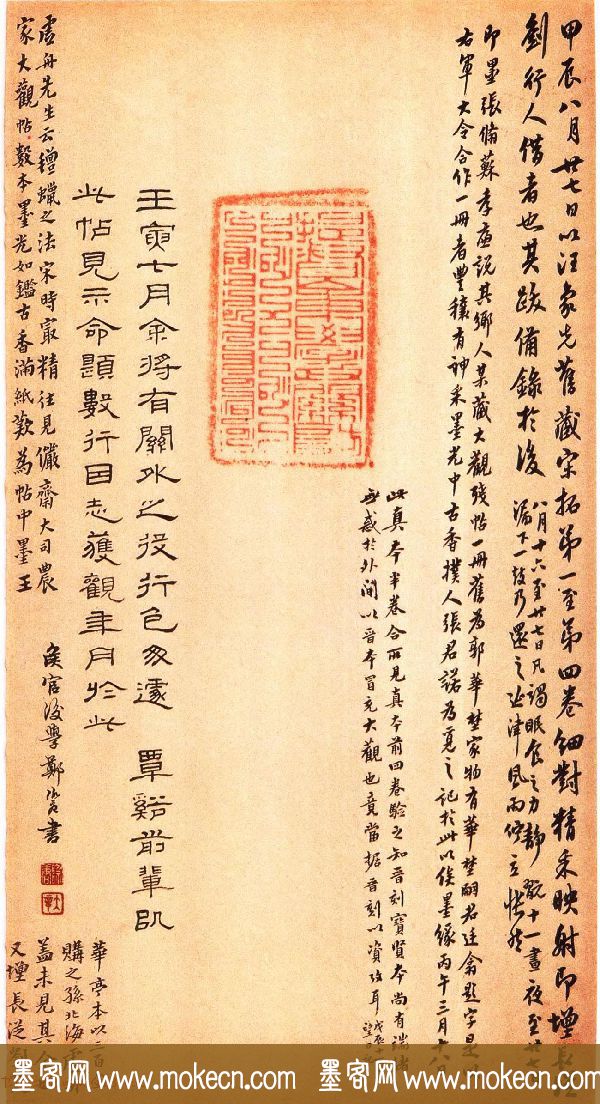 甲辰八月廿七日以汪象先舊藏宋拓第一至第四卷細對精采映射即增長
劍行人借者也其跋備錄於後
八月十六至廿七日凡謁眠食之力靜觀十一晝夜至廿
漏下一鼓乃還之津風雨佇立悵然
即墨張脩蘇孝廉說其鄉人某藏大觀殘帖一冊舊為郭華埜家物有華埜嗣君廷翕題字是
右軍大令合作一冊者豐穰有神采墨光中古香撲人張君諾為覓之記於此以俟墨緣丙午三月六
此真本半卷合所見真本前四卷驗之知晉刻寶賢本尚有
無惑於外間以晉本冒充大觀也竟當据晉刻以資攷耳
壬寅七月余將有關外之役行色匆遽 覃谿前輩
此帖見示命題數行目志獲觀年月於此
虛舟先生云氊蠟之法宋時最精往見儼齋大司農
家大觀帖數本墨光如鑑古香滿紙歎為帖中墨王
侯官後學鄭 書
華亭本以
購之孫北海
蓋未見其
又增長
墨客网 www.mokecn.com 墨客网 www.mokecn.com